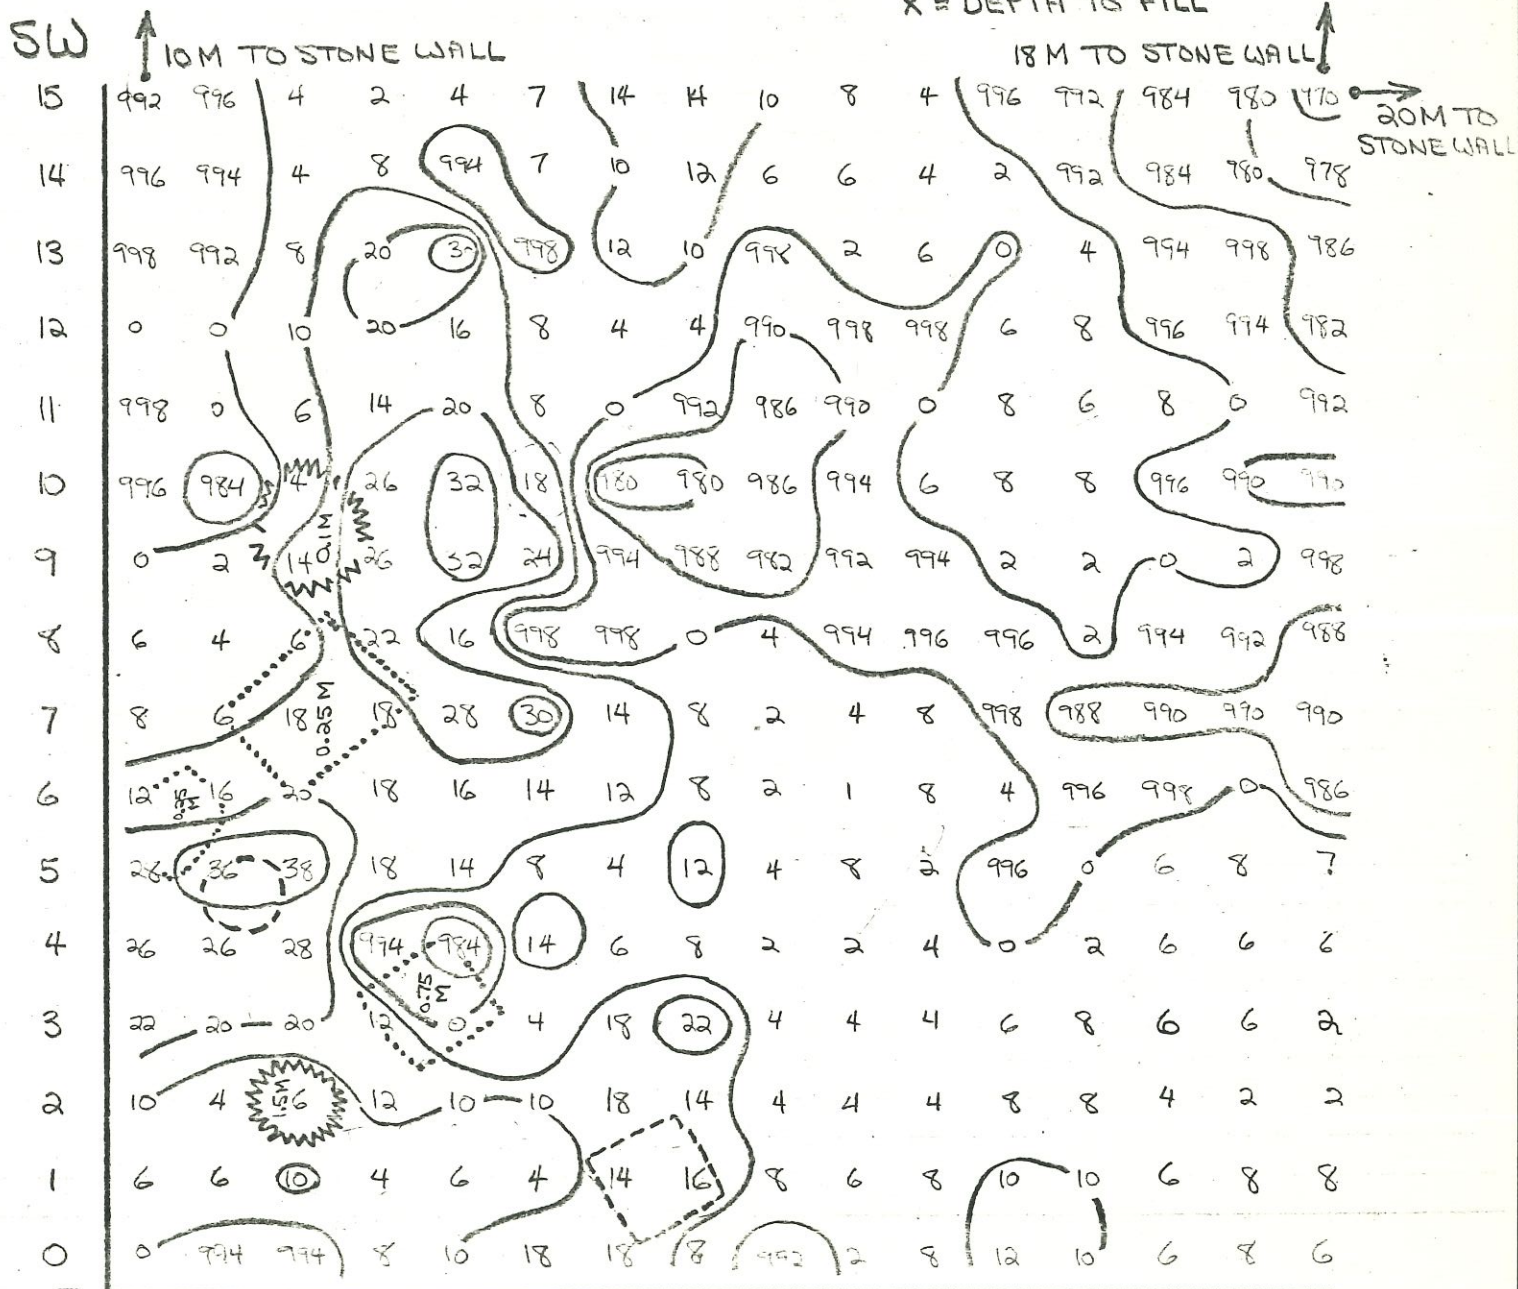 X = DEPTH TO FILL
SW 10M TO STONE WALL 18 M TO STONE WALL
15 992 996 4 2 4 7 14 14 10 8 4 996 992 984 980 970
20M TO
STONE WALL
14 996 994 4 8 994 7 10 12 6 6 4 2 992 984 980 978
13 998 992 8 20 30 998 12 10 998 2 6 0 4 994 998 986
12 0 0 10 20 16 8 4 4 990 998 998 6 8 996 994 982
11 998 0 6 14 20 8 0 992 986 990 0 8 6 8 0 992
10 996 984 4 26 32 18 980 980 986 994 6 8 8 996 990 990
0.1M
9 0 2 14 26 32 24 994 988 982 992 994 2 2 0 2 998
8 6 4 6 22 16 998 998 0 4 994 996 996 2 994 992 988
7 8 6 18 18 28 30 14 8 2 4 8 998 988 990 990 990
0.25 M
6 12 16 20 18 16 14 12 8 2 1 8 4 996 998 0 986
0.25 M
5 28 36 38 18 14 8 4 12 4 8 2 996 0 6 8 ?
4 26 26 28 994 984 14 6 8 2 2 4 0 2 6 6 6
0.75 M
3 22 20 20 12 0 4 18 22 4 4 4 6 8 6 6 2
2 10 4 6 12 10 10 18 14 4 4 4 8 8 4 2 2
1.5M
1 6 6 10 4 6 4 14 16 8 6 8 10 10 6 8 8
0 0 994 994 8 10 18 18 8 992 2 8 12 10 6 8 6